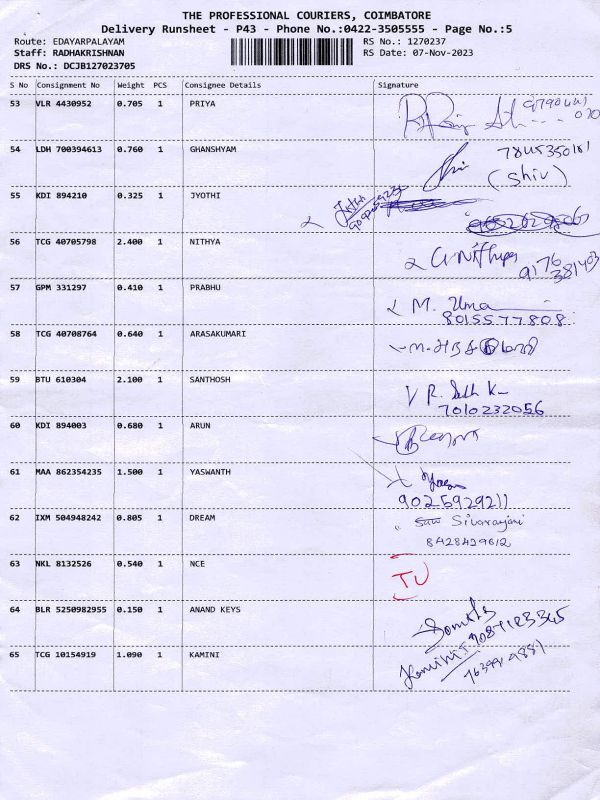 THE PROFESSIONAL COURIERS, COIMBATORE
Delivery Runsheet - P43 - Phone No.:0422-3505555 - Page No.:5
Route: EDAYARPALAYAM RS No.: 1270237
Staff: RADHAKRISHNAN RS Date: 07-Nov-2023
DRS No.: DCJB127023705
S No Consignment No Weight PCS Consignee Details Signature
53 VLR 4430952 0.705 1 PRIYA
54 LDH 700394613 0.760 1 GHANSHYAM
(Shiv)
55 KDI 894210 0.325 1 JYOTHI
56 TCG 40705798 2.400 1 NITHYA
9176
381403
57 GPM 331297 0.410 1 PRABHU M. Uma
8015577808
58 TCG 40708764 0.640 1 ARASAKUMARI
59 BTU 610304 2.100 1 SANTHOSH
7010232056
60 KDI 894003 0.680 1 ARUN
61 MAA 862354235 1.500 1 YASWANTH
9025929211
62 IXM 504948242 0.805 1 DREAM Sivaranjani
8428429612
63 NKL 8132526 0.540 1 NCE TU
64 BLR 5250982955 0.150 1 ANAND KEYS
65 TCG 10154919 1.090 1 KAMINI Kamini.S